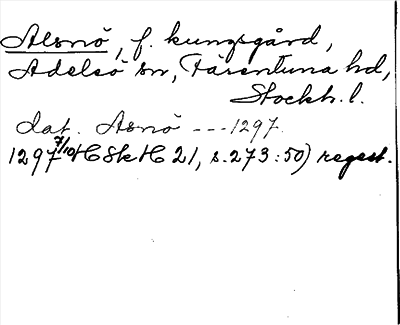 Alsnö, f. kungsgård,
Adelsö sn, Färentuna hd,
Stockh. l.
dat. Asnö --- 1297.
1297 7/10 HSkH 21, s. 273 : 50) regest.